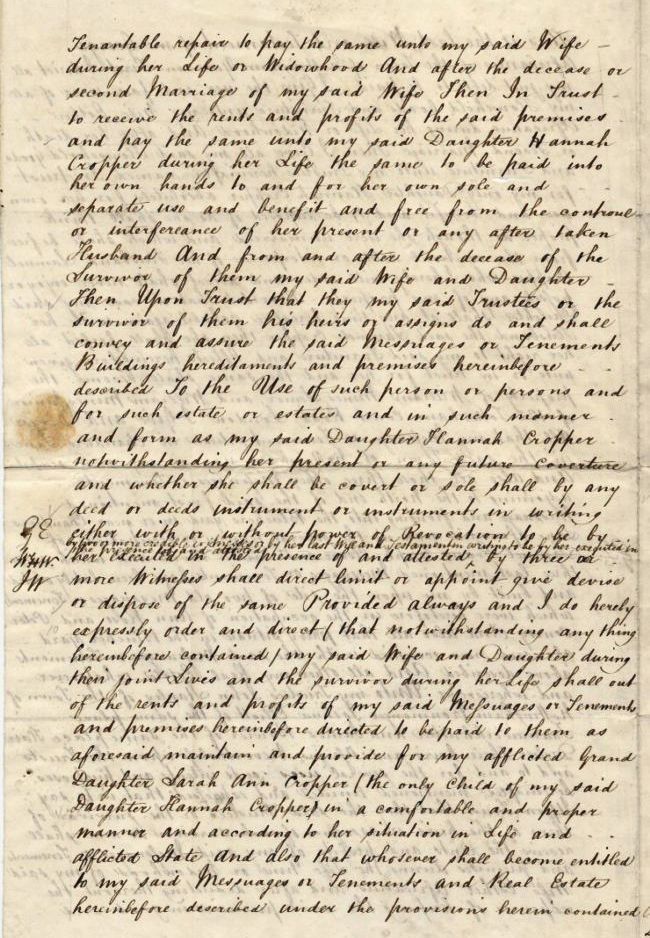 Tenantable repair to pay the same unto my said Wife
during her Life or Widowhood And after the decease or
second Marriage of my said Wife Then In Trust
to receive the rents and profits of the said premises
and pay the same unto my said Daughter Hannah
Cropper during her Life the same to be paid into
her own hands to and for her own sole and
separate use and benefit and free from the controul
or interfereance of her present or any after taken
Husband And from and after the decease of the
Survivor of them my said Wife and Daughter
Then Upon Trust that they my said Trustees or the
survivor of them his heirs or assigns do and shall
convey and assure the said Messuages or Tenements
Buildings hereditaments and premises hereinbefore
described To the Use of such person or persons and
for such estate or estates and in such manner
and form as my said Daughter Hannah Cropper
notwithstanding her present or any future coverture
and whether she shall be covert or sole shall by any
deed or deeds instrument or instruments in writing
either with or without power of Revocation to be by
by her last Will and Testament in writing to be by her executed in
the presence of and attested
her executed in the presence of and attested ^ by three or
more Witnesses shall direct limit or appoint give devise
or dispose of the same Provided always and I do hereby
expressly order and direct (that notwithstanding any thing
hereinbefore contained) my said Wife and Daughter during
their joint Lives and the survivor during her Life shall out
of the rents and profits of my said Messuages or Tenements
and premises hereinbefore directed to be paid to them as
aforesaid maintain and provide for my afflicted Grand
Daughter Sarah Ann Cropper (the only Child of my said
Daughter Hannah Cropper) in a comfortable and proper
manner and according to her situation in Life and
afflicted State And also that whosoever shall become entitled
to my said Messuages or Tenements and Real Estate
hereinbefore described under the provisions herein contained